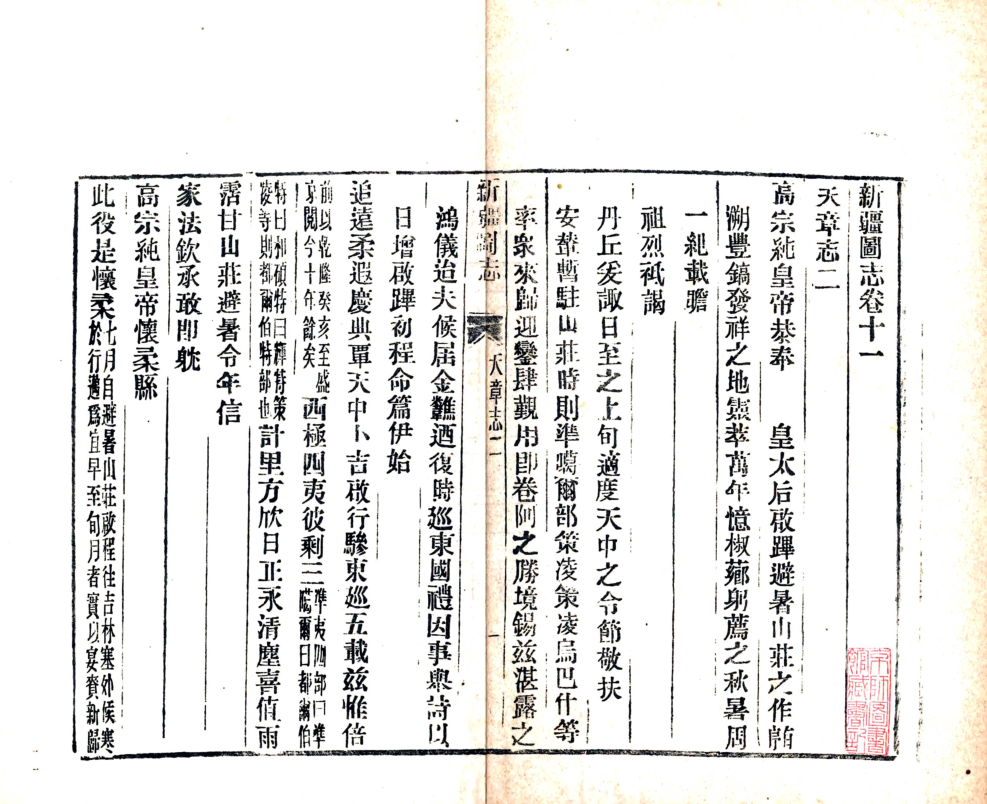 新疆圖志卷十一
天章志二
高宗純皇帝恭奉　皇太后啟蹕避暑山莊之作有
溯豐鎬發祥之地靈萃萬年憶椒薌躬薦之秋暑周
一紀載瞻
祖烈祗謁
丹丘爰諏日至之上旬適度天中之令節敬扶
安輦暫駐山莊時則準噶爾部策凌策凌烏巴什等
率衆來歸迎鑾肆覲用即卷阿之勝境錫茲湛露之
鴻儀迨夫候屆金飈迺復時廵東國禮因事舉詩以
日增啟蹕初程命篇伊始
追遠柔遐慶典覃天中卜吉啟行驂東廵五載茲惟倍
前以乾隆癸亥至盛京閱今十年餘矣西極四夷彼剩三準夷四部曰準噶爾曰都爾伯
特曰和碩特曰輝特策凌等則都爾伯特部也計里方欣日正永清塵喜值雨
霑甘山莊避暑令年信
家法欽承敢即躭
高宗純皇帝懷柔縣
此役是懷柔七月自避暑山莊啟程往吉林塞外候寒於行邁爲宜早至旬月者實以宴賚新歸
新疆圖志
天章志二
一